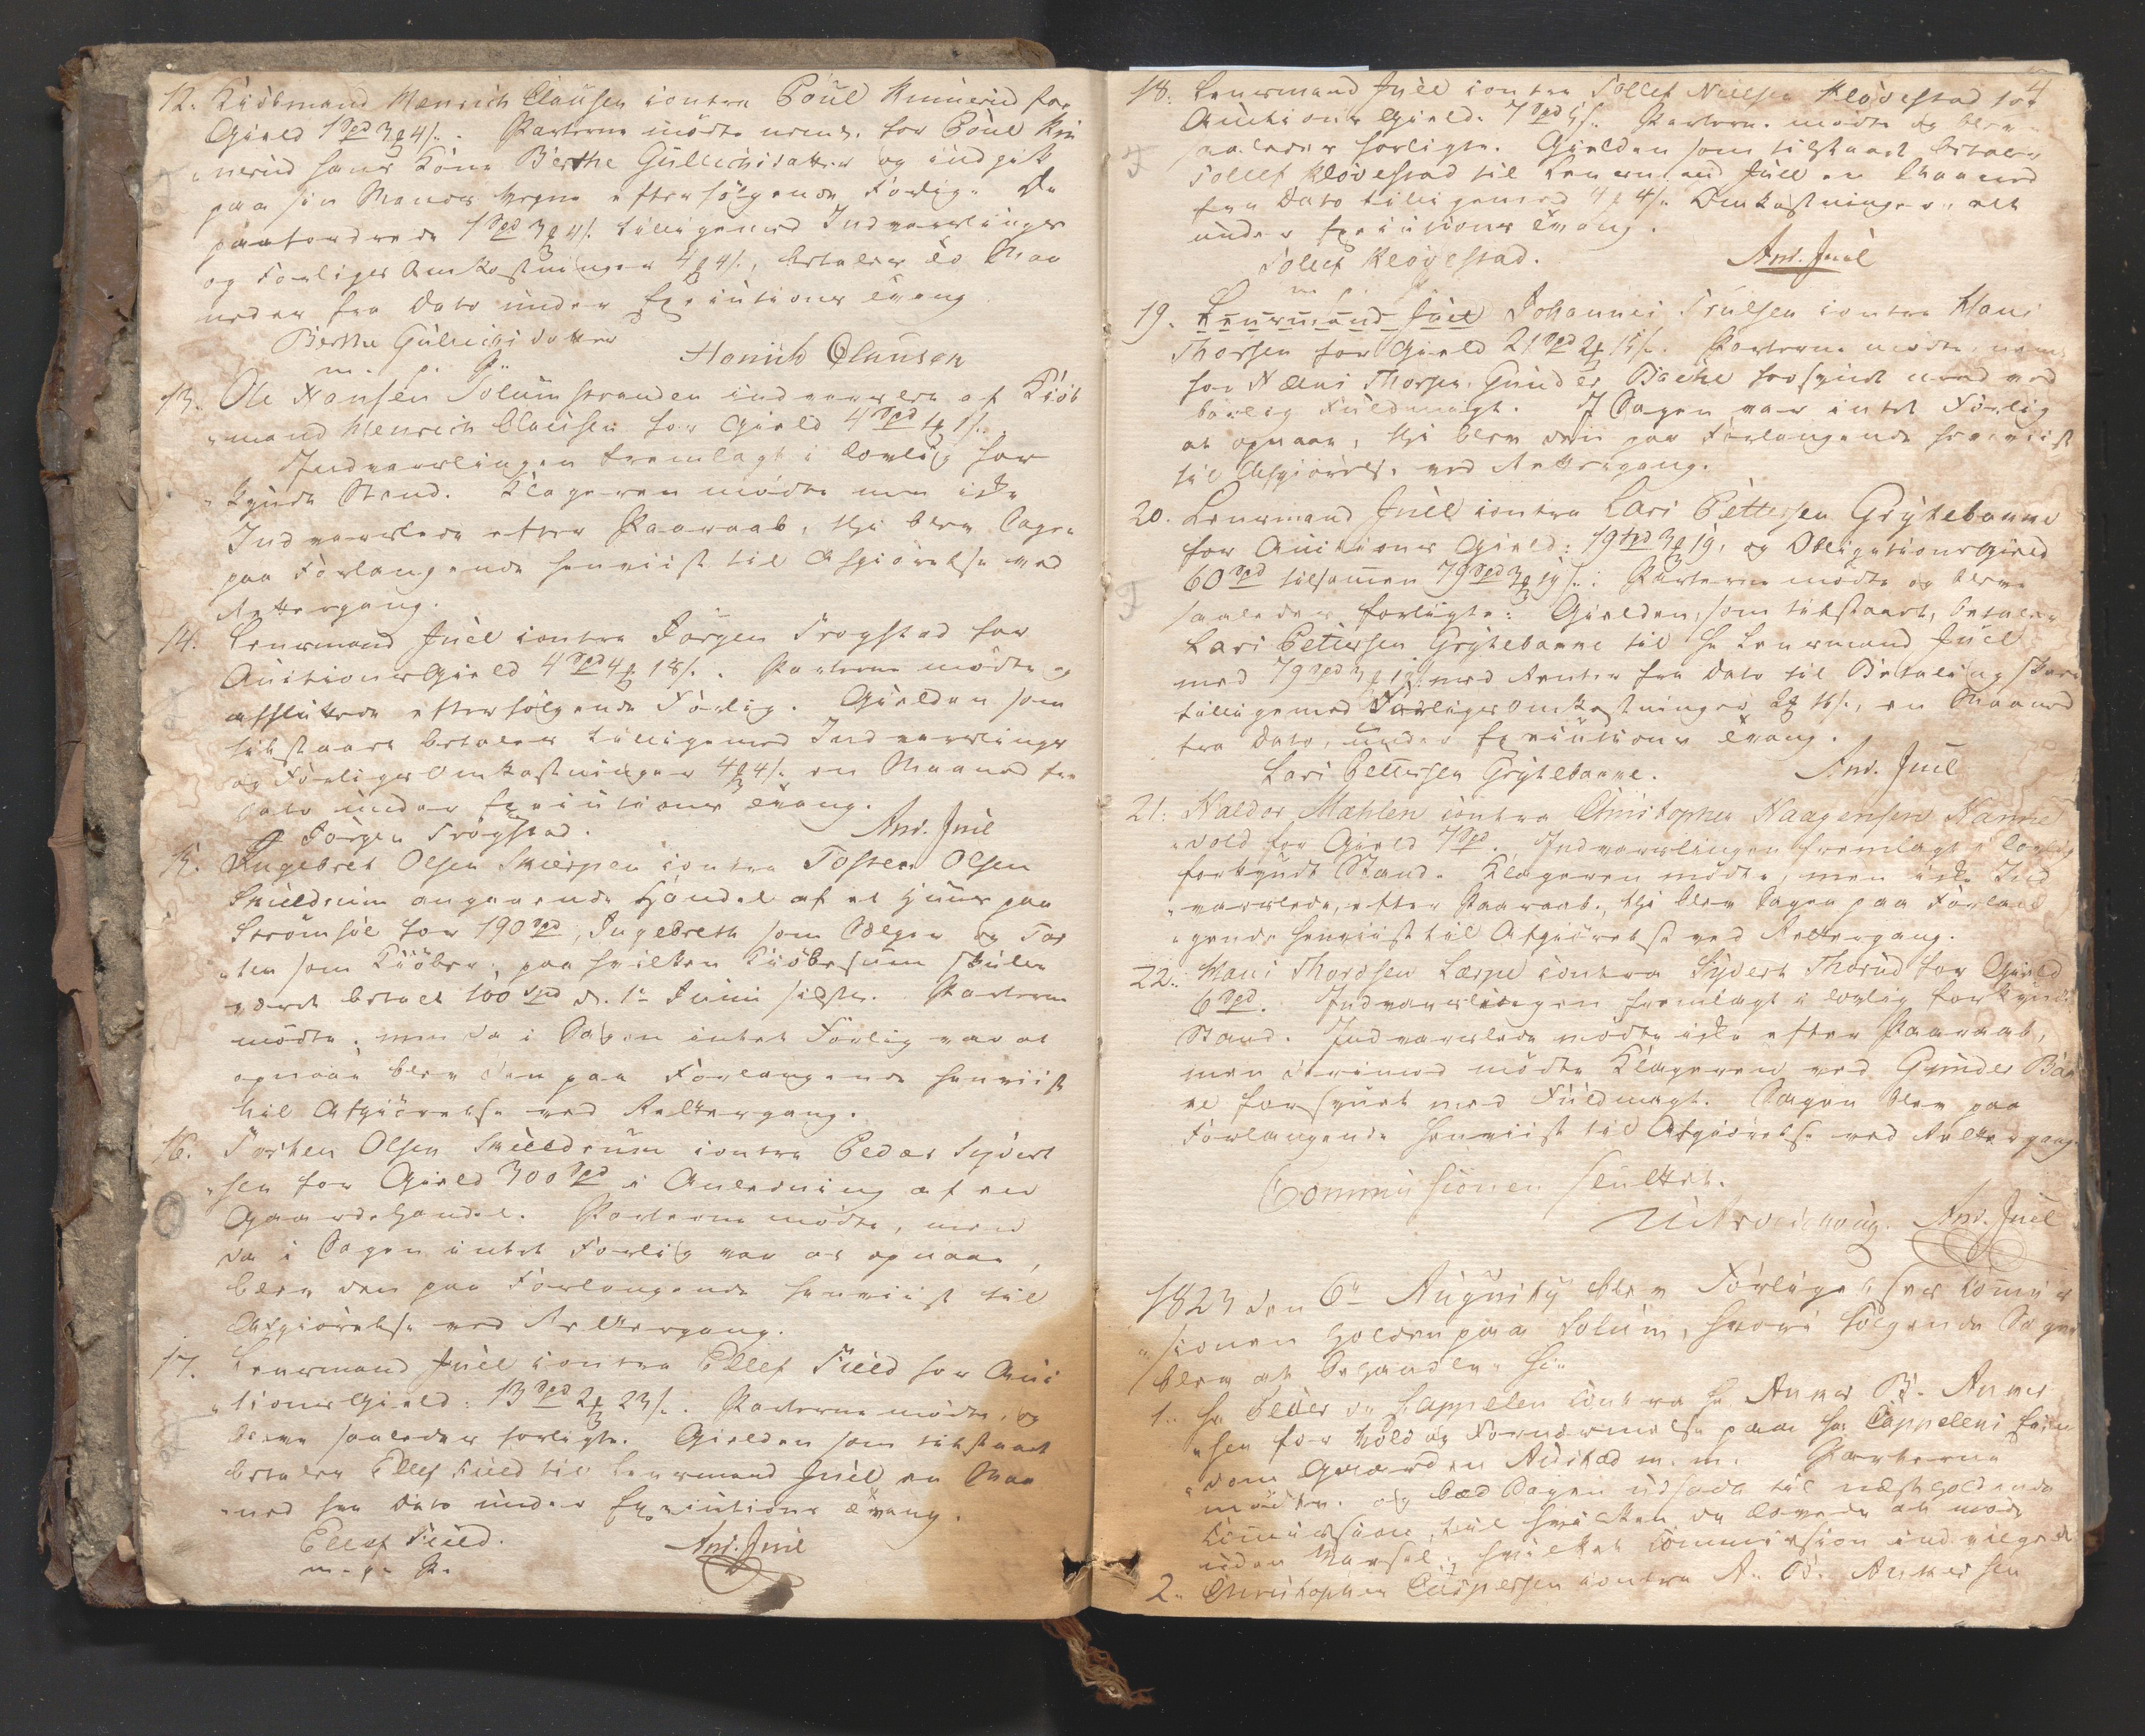 12. Kiöbmand Henrich Clausen contra Poul Kinnerud for
Gield 1 Spd 3 4 s. Parterne mödte nemt. for Poul Kin
nerud hans Kone Berthe Gullichsdatter og indgik
paa sin Mands vegne efterfölgende Forlig. De
paafordrede 1 Spd 3 4 s. tilligemed Indvarslings
og Forligs Omkostninger 4 4 s., betales to Maa
neder fra Dato under Executions Tvang
Berthe Gullichsdatter
m. p. P.
Henrich Clausen
13. Ole Hansen Solumstranden indvarslet af Kiöb
mand Henrich Clausen for Gield 4 Spd 1 1 s.
Indvarslingen fremlagt i lovlig for
kyndt Stand. Klageren mödte men ikke
Indvarslede efter Paaraab, thi blev Sagen
paa Forlangende henviist til Afgiörelse ved
Rettergang.
14. Lensmand Juel contra Jörgen Trogstad for
Auctions Gield 4 Spd 4 18 s. Parterne mödte og
afsluttede efterfölgende Forlig. Gielden som
tilstaaet betales tilligemed Indvarslings
og Forligs Omkostninger 4 4 s. en Maaned fra
Dato under Executions Tvang.
Jörgen Trogstad.
And. Juel
15. Engebret Olsen Skierpen contra Tosten Olsen
Skuldrum angaaende Handel af et Huus paa
Strömsöe for 190 Spd, Ingebreth som Sælger og Tos
ten som Kiöber, paa hvilken Kiöbesum skulde
været betalt 100 Spd d. 1te Junii sidstl. Parterne
mödte, men da i Sagen intet Forlig var at
opnaae blev den paa Forlangende henviist
til Afgiörelse ved Rettergang.
16. Torsten Olsen Skuldrum contra Peder Syvert
sen for Gield 300 Spd i Anledning af en
Gaardehandel. Parterne mödte, men
da i Sagen intet Forlig var at opnaae,
blev den paa Forlangende henviist til
Afgiörelse ved Rettergang.
17. Lensmand Juel contra Ellef Field for Auc
tions Gield: 13 Spd 2 23 s. Parterne mödte, og
bleve saaledes forligte. Gielden som tilstaaet
betaler Ellef Field til Lensmand Juel en Maa
ned fra Dato under Executions Tvang.
Ellef Field.
m. p. P.
And. Juel
4
18. Lensmand Juel contra Tollef Nielsen Klövestad for
Auctions Gield. 7 Spd 5 s. Parterne mödte og bleve
saaledes forligte. Gielden som tilstaaet betaler
Tollef Klövestad til Lensmand Juel en Maaned
fra Dato tilligemed 4 4 s. Omkostninger, alt
under Executions Tvang.
Tollef Klövestad.
m. p. P.
And. Juel
19. Lensmand Juel Johannes Trulsen contra Hans
Thorsen for Gield 21 Spd 2 15 s. Parterne mödte, nemt
for Hans Thorsen Gunder Bache forsynet med ved
börlig Fuldmagt. I Sagen var intet Forlig
at opnaae, thi blev den paa Forlangende henviist
til Afgiörelse ved Rettergang.
20. Lensmand Juel contra Lars Pettersen Grytebanne
for Auctions Gield: 19 Spd 3 19, og Obligationsgield
60 Spd tilsamen 79 Spd 3 19 s.: Parterne mödte og bleve
saaledes forligte: Gielden, som tilstaaet, betaler
Lars Pettersen Grytebanne til Hr Lensmand Juel
med 79 Spd 3 19 med Renter fra Dato til Betaling skeer
tilligemed Forligs Omkostninger 2 16 s., en Maaned
fra Dato, under Executions Tvang.
Lars Pettersen Grytebanne.
And. Juel
21. Haldor Mæhlen contra Christopher Haagensen Hanne
vold for Gield 7 Spd. Indvarslingen fremlagt i lovlig
forkyndt Stand. Klageren mödte, men ikke Ind
varslede, efter Paaraab, thi blev Sagen paa Forlan
gende henviist til Afgiörelse ved Rettergang.
22. Hans Thordsen Lærpe contra Syvert Thorud for Gield
6 Spd. Indvarslingen fremlagt i lovlig forkyndt
Stand. Indvarslede mödte ikke efter Paaraab,
men derimod mödte Klageren ved Gunder Bac
he forsynet med Fuldmagt. Sagen blev paa
Forlangende henviist til Afgiörelse ved Rettergang.
Commissionen sluttet.
And. Juel
1823 den 6te Augusty blev Forligelses Comis
sionen holden paa Solum, hvori fölgende Sager
blev at behandle:
1. Hr Peder v. Cappelen contra Hr Anners B. Anners
sen for Vold og Fornærmelse paa Hr Cappelens Eien
dom Gaarden m. m. Parterne
mödte, og bad Sagen udsadt til næstholdende
Comission, til hvilken de lovede at möde
uden Varsel, hvilket Commission indvilgede
2. Christopher Caspersen contra A. B. Annersen